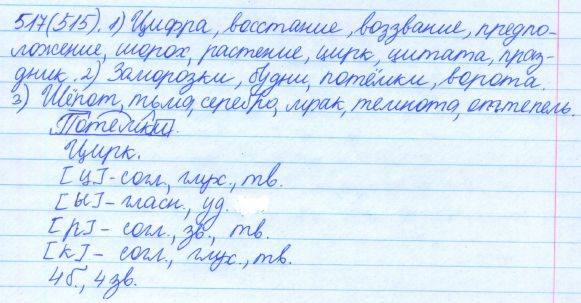 517(515). 1) Цифра, восстание, воззвание, предпо-
ложение, шорох, растение, цирк, цитата, праз-
дник. 2) Заморозки, будни, потёмки, ворота.
3) Шёпот, тьма, серебро, мрак, темнота, оттепель.
Потёмки.
Цирк.
[ц] - согл., глух., тв.
[ы] - гласн., уд.
[р] - согл., зв., тв.
[к] - согл., глух., тв.
4 б., 4 зв.